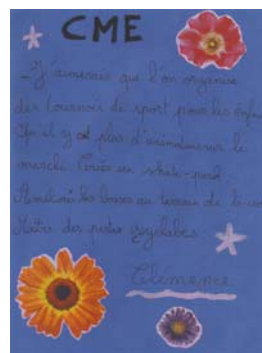 CME
- J'aimerais que l'on organise
des tournois de sport pour les enfan
Qu'il y ait plus d'animation sur le
marché. Créer un skate-park
les bosses au terrain de
Mettre des pistes cyclables
Clémence